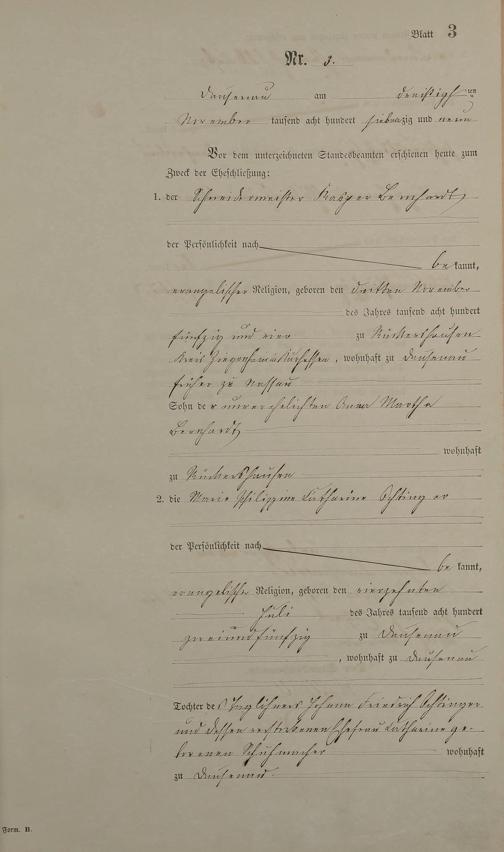 Blatt 3
Nr. 3.
Dausenau am dreißigsten
November tausend acht hundert siebenzig und neun
Vor dem unterzeichneten Standesbeamten erschienen heute zum
Zweck der Eheschließung:
1. der Schneidermeister Kasper Bernhardt,
der Persönlichkeit nach
be kannt,
evangelischer Religion, geboren den dritten November
des Jahres tausend acht hundert
fünfzig und vier zu Rückershausen
Kreis Ziegenhain Kurhessen, wohnhaft zu Dausenau
früher zu Nassau
Sohn der unverehelichten Anna Martha
Bernhardt
wohnhaft
zu Rückershausen
2. die Marie Philippine Catharine Oehtinger
der Persönlichkeit nach
be kannt,
evangelische Religion, geboren den vierzehnten
Juli des Jahres tausend acht hundert
zweiundfünfzig zu Dausenau
, wohnhaft zu Dausenau
Tochter des Taglöhners Johann Friedrich
und dessen verstorbenen Ehefrau Catharine ge-
borenen Schuhmacher wohnhaft
zu Dausenau.
Form. B.